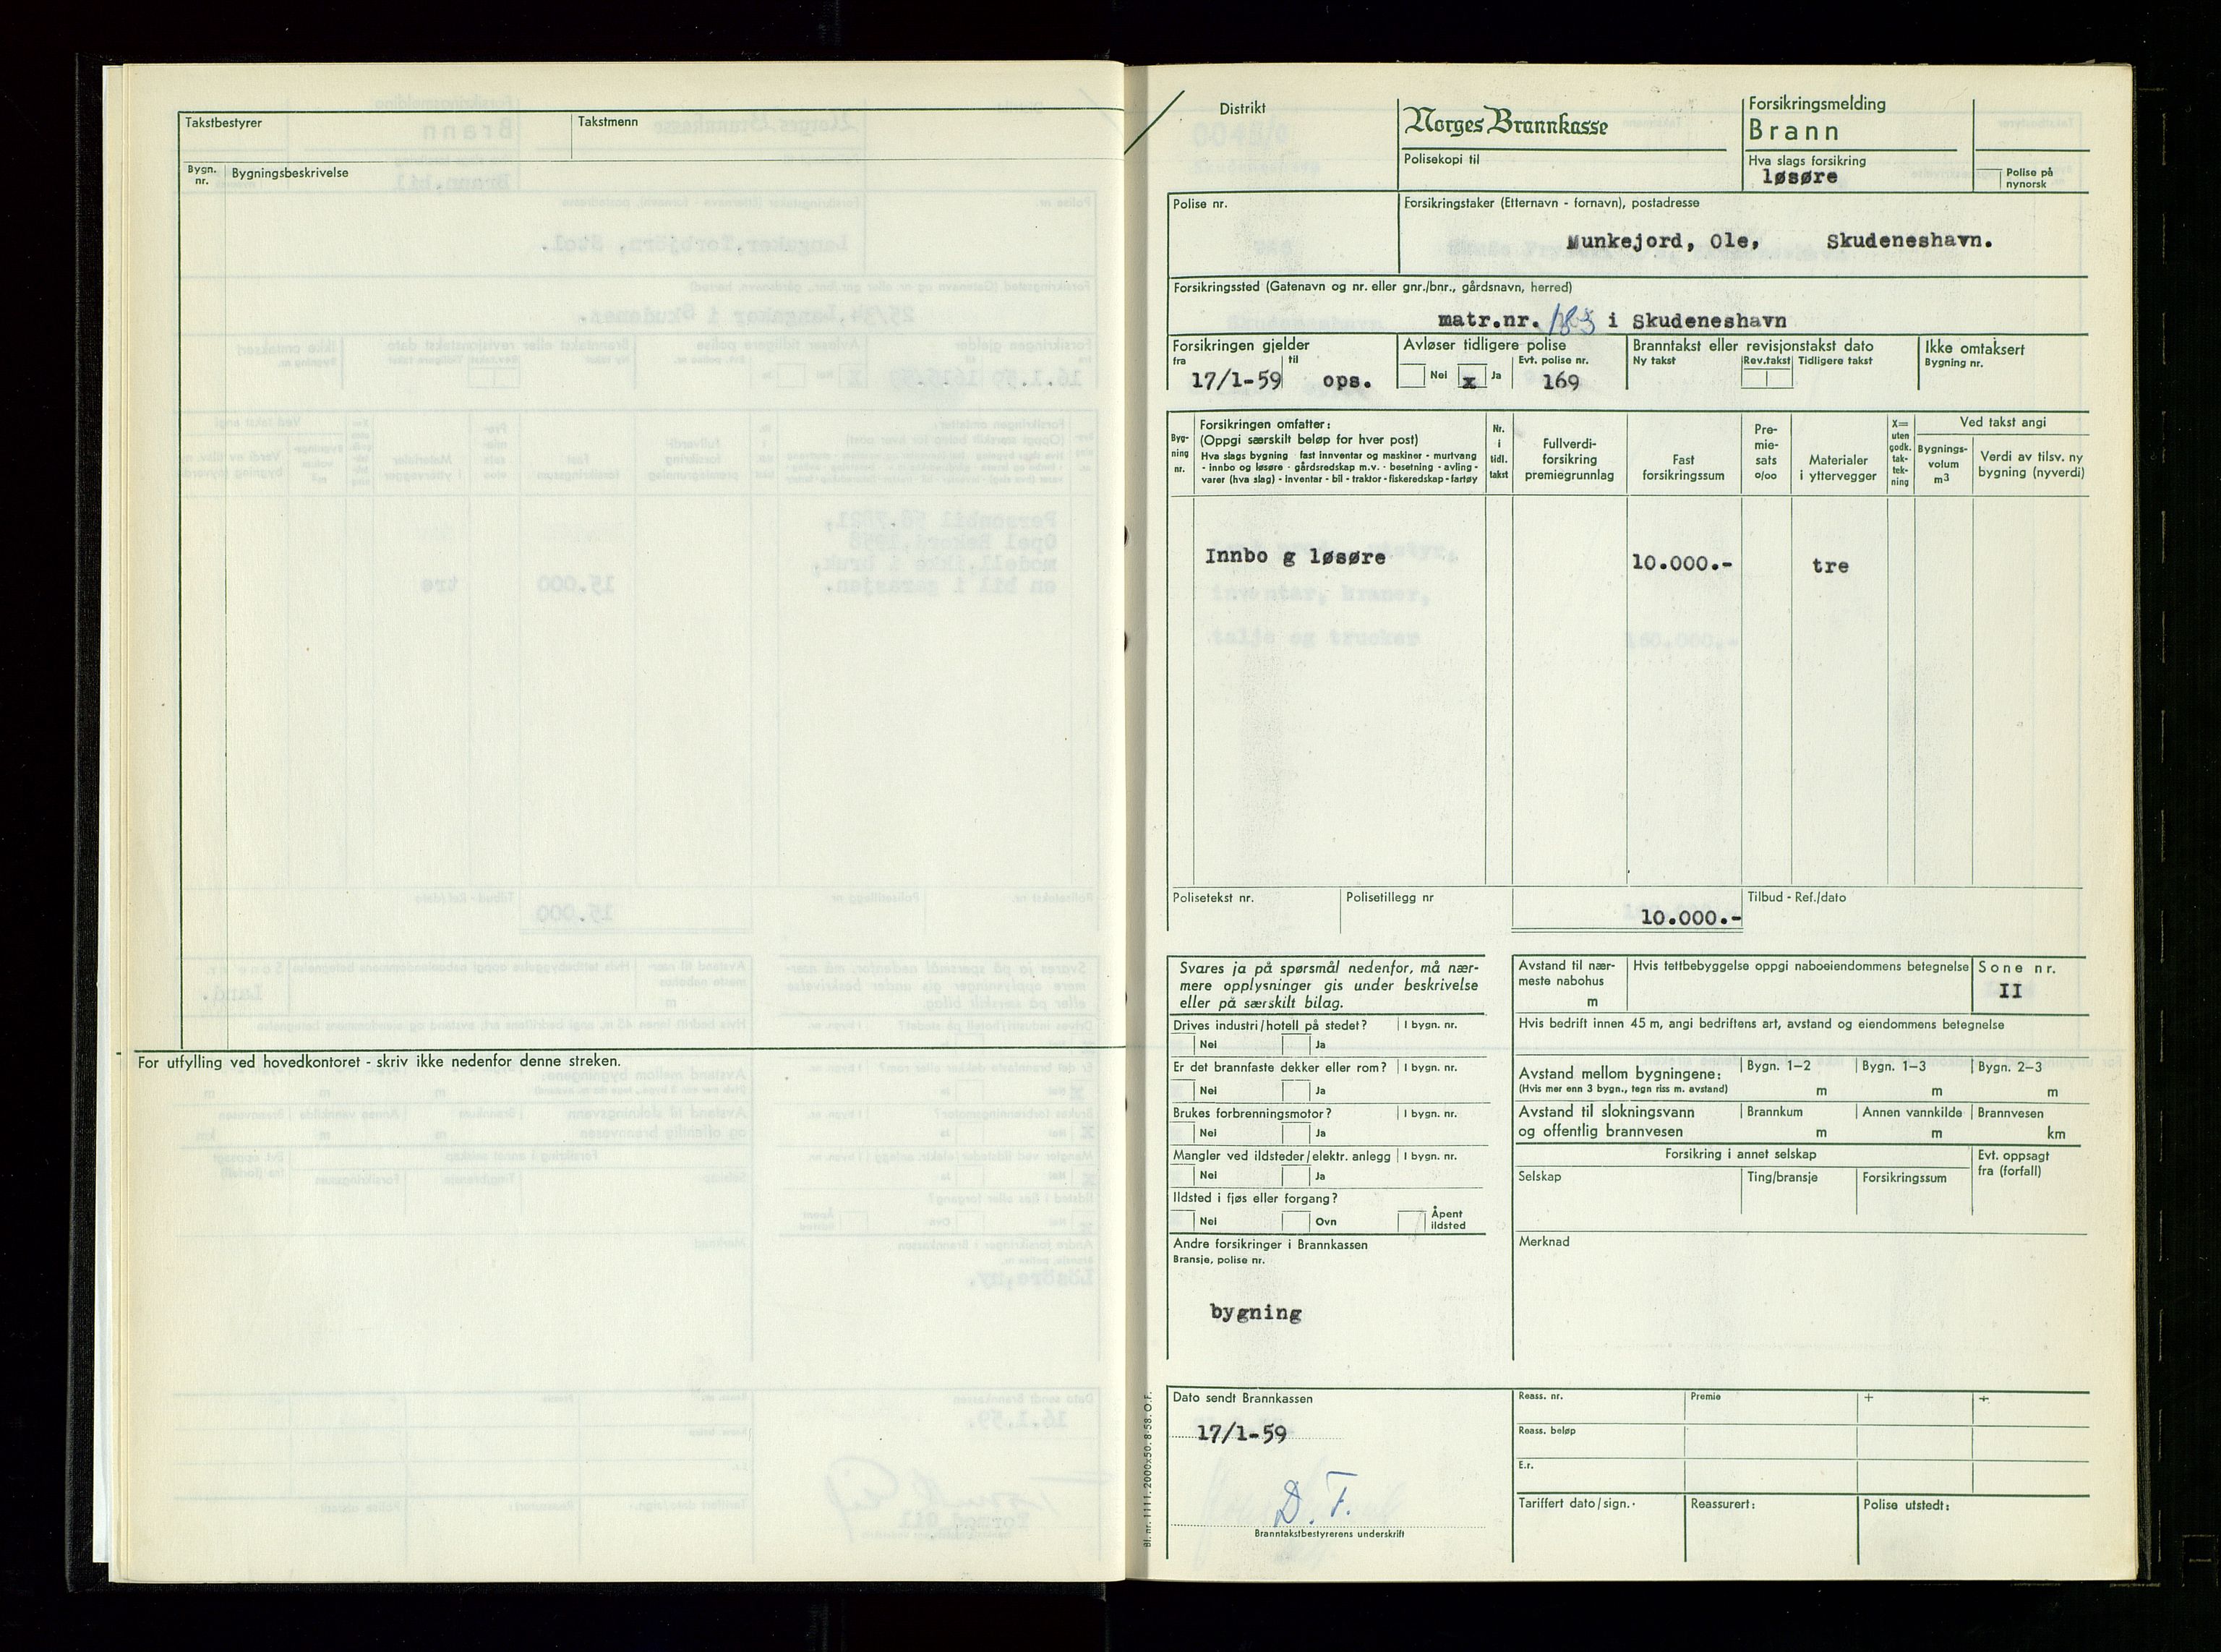 Takstbestyrer
Takstmenn
Bygn. nr.
Bygningsbeskrivelse
For utfylling ved hovedkontoret - skriv ikke nedenfor denne streken.
Distrikt
Norges Brannkasse
Polisekopi til
Forsikringsmelding
Brann
Hva slags forsikring
løsøre
Polise på nynorsk
Polise nr.
Forsikringstaker (Etternavn - fornavn), postadresse
Munkejord, Ole, Skudeneshavn.
Forsikringssted (Gatenavn og nr. eller gnr./bnr., gårdsnavn, herred)
matr.nr. 183 i Skudeneshavn
Forsikringen gjelder
fra til
17/1-59 ops.
Avløser tidligere polise
Nei x Ja
Evt. polise nr.
169
Branntakst eller revisjonstakst dato
Ny takst Rev.takst Tidligere takst
Ikke omtaksert
Bygning nr.
Byg-
ning
nr.
Forsikringen omfatter:
(Oppgi særskilt beløp for hver post)
Hva slags bygning - fast innventar og maskiner - murtvang
- innbo og løsøre - gårdsredskap m.v. - besetning - avling -
varer (hva slag) - inventar - bil - traktor - fiskeredskap - fartøy
Nr.
i
tidl.
takst
Fullverdi-
forsikring
premiegrunnlag
Fast
forsikringssum
Pre-
mie-
sats
o/oo
Materialer
i yttervegger
X=
uten
godk.
tak-
tek-
ning
Ved takst angi
Bygnings-
volum
m3
Verdi av tilsv. ny
bygning (nyverdi)
Innbo g løsøre 10.000.- tre
Polisetekst nr.
Polisetillegg nr
10.000.-
Tilbud - Ref./dato
Svares ja på spørsmål nedenfor, må nær-
mere opplysninger gis under beskrivelse
eller på særskilt bilag.
Drives industri/hotell på stedet? I bygn. nr.
Nei Ja
Er det brannfaste dekker eller rom? I bygn. nr.
Nei Ja
Brukes forbrenningsmotor? I bygn. nr.
Nei Ja
Mangler ved ildsteder/elektr. anlegg I bygn. nr.
Nei Ja
Ildsted i fjøs eller forgang?
Nei Ovn Åpent ildsted
Andre forsikringer i Brannkassen
Bransje, polise nr.
bygning
Avstand til nær-
meste nabohus
m
Hvis tettbebyggelse oppgi naboeiendommens betegnelse
Sone nr.
II
Hvis bedrift innen 45 m, angi bedriftens art, avstand og eiendommens betegnelse
Avstand mellom bygningene:
(Hvis mer enn 3 bygn., tegn riss m. avstand)
Bygn. 1-2 m
Bygn. 1-3 m
Bygn. 2-3 m
Avstand til slokningsvann
og offentlig brannvesen
Brannkum m
Annen vannkilde m
Brannvesen km
Forsikring i annet selskap
Selskap
Ting/bransje
Forsikringssum
Evt. oppsagt
fra (forfall)
Merknad
Dato sendt Brannkassen
17/1-59
D. F.
Branntakstbestyrerens underskrift
Reass. nr.
Premie
+
÷
Reass. beløp
E.r.
Tariffert dato/sign.
Reassurert:
Polise utstedt:
Bl. nr. 1111. 2000x50. 8-58. O.F.